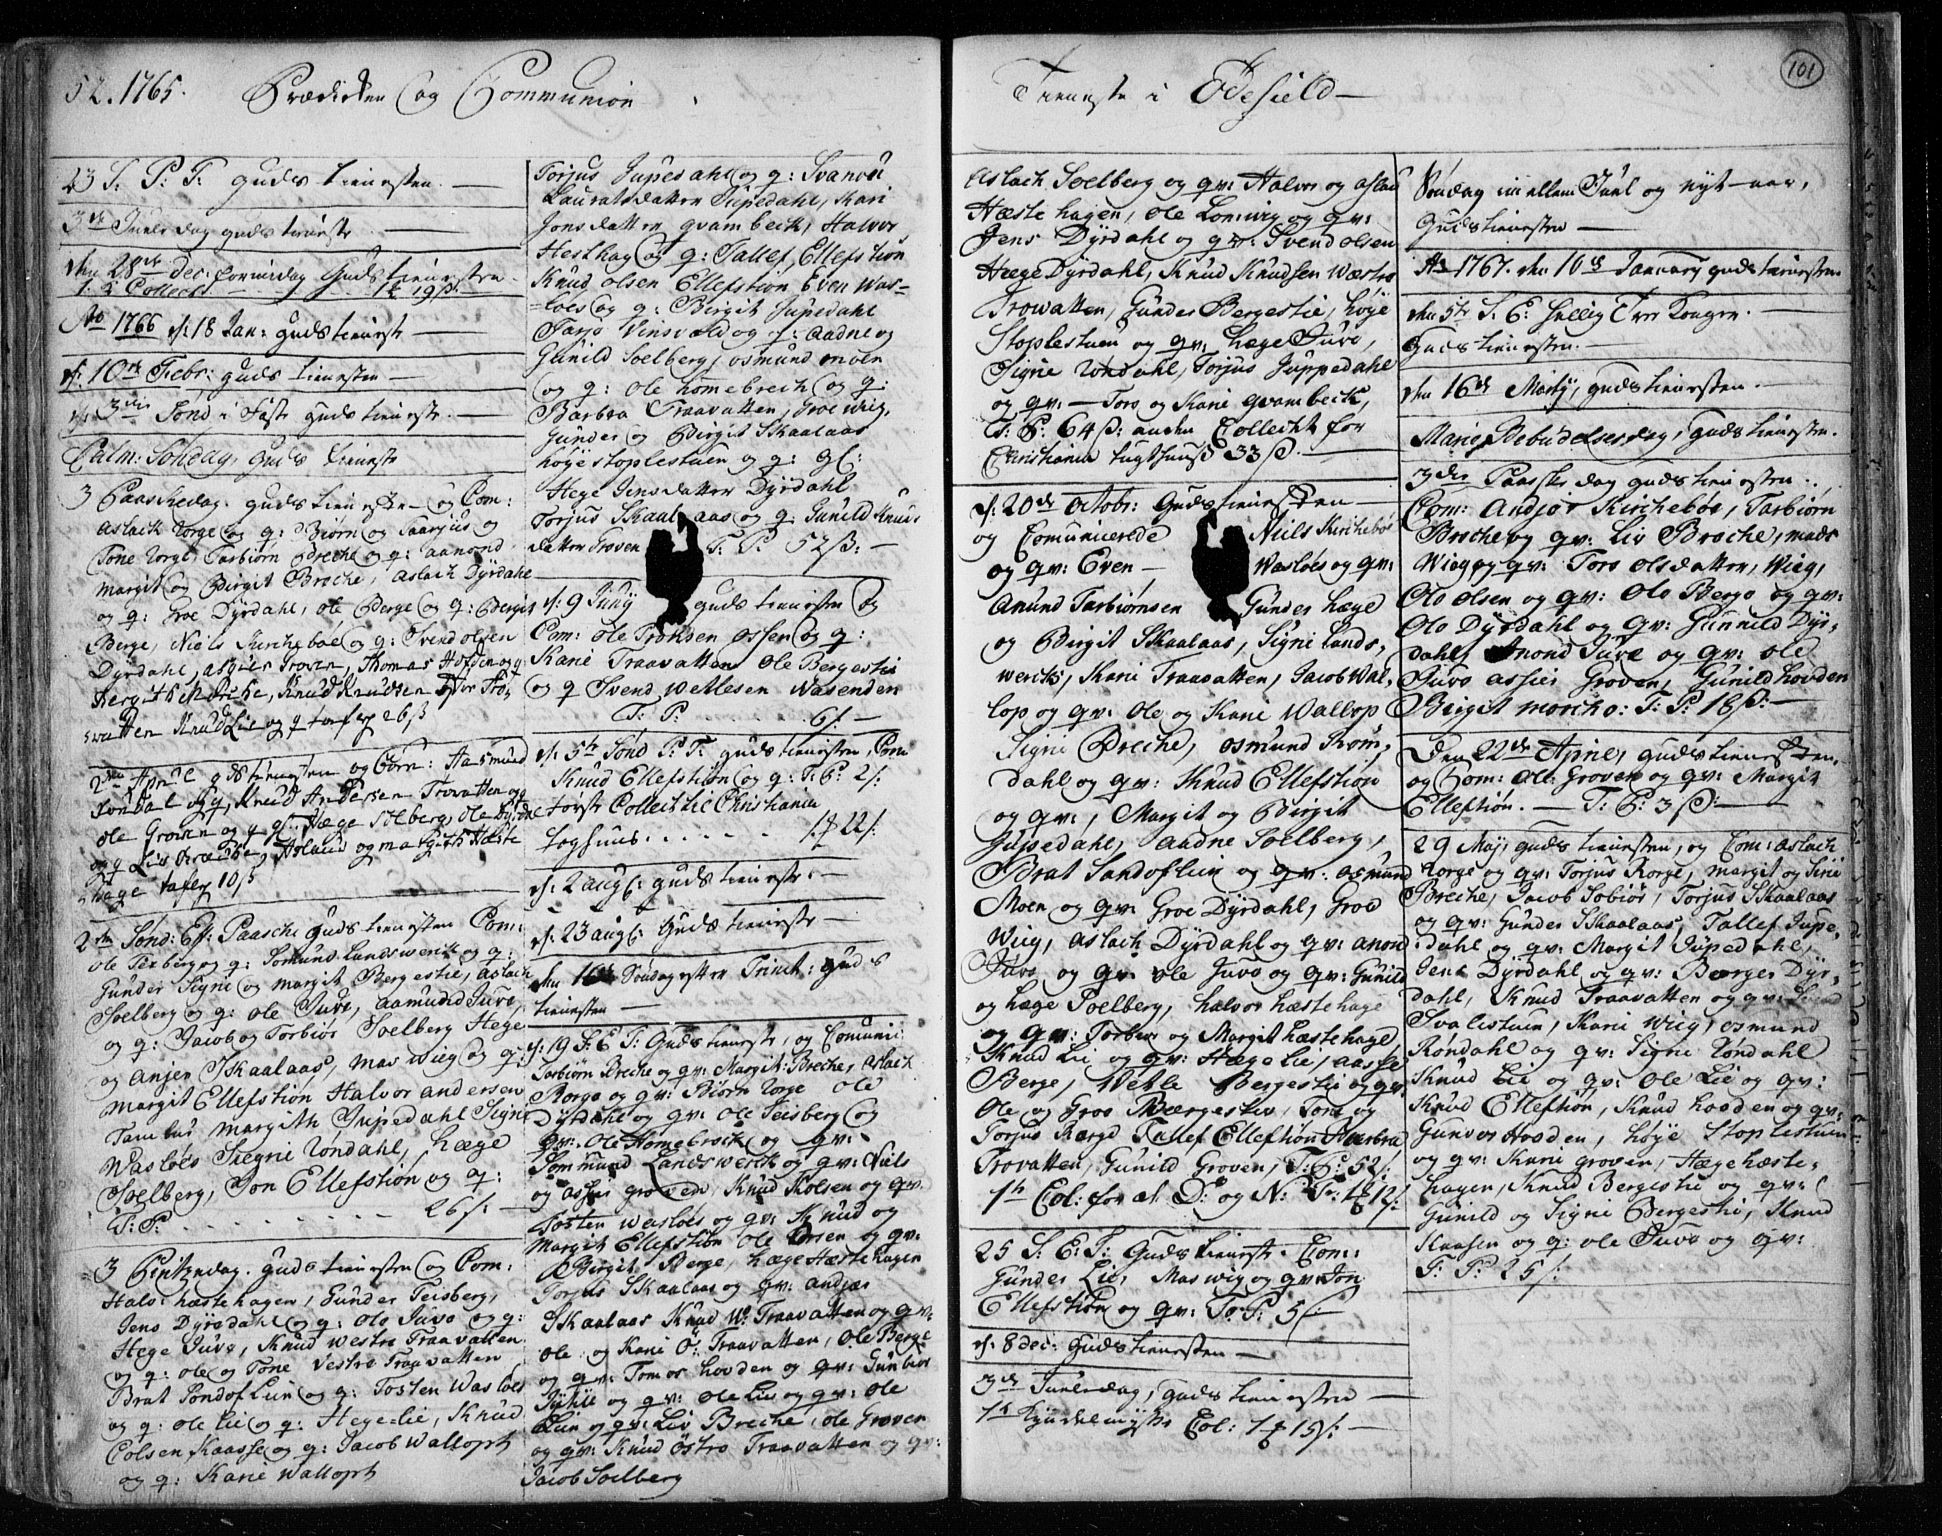 52. 1765. Prædicken og Communion
23 S. P. T. guds tienesten. —
3de Juule dag guds tieneste —
den 28de Dec. formidag Guds tienesten
1ste Collect
Ao 1766 d: 18 Jan: guds tienest —
d: 10de Febr: guds tienesten —
3die Sönd i Faste guds tieneste. —
Palm: Söndag, guds tieneste
3 Paaschedag. guds tienesten og Com:
Aslach Rorge og q: Biørn og Taarjus og
Tone Rorge Tarbiørn Breche og q: Aanond
Margit og Birgit Breche, Aslach Dÿrdahl
og q: Groe Dÿrdahl, ole Berge og q: Bergit
Berge, Niels Kirchebøe og q: Svend olsen
Dÿrdahl, Thomas Hofden og q
Knud Knudsen
Knud Lie og q 26 ß
2den Aprill guds tienesten og Com: Aasmund
og q, Knud Andersen Trovatten og
ole Groven og q Hæge Solberg, ole
og q og Margith Hæste
hage 10 ß
2den Sönd: Eft: Paasche Guds tienesten Com:
ole Texberg og q: Somund Landswerck og q:
Gunder Signe og Margit Bergestie, Aslach
Soelberg og q: ole Juve, Aamund Juve,
og q: Jacob og Torbiør Soelberg Hege
og Anjer Skaalaas, Mas wieg og q:
Margit Ellefstiön Halvor andersen
Margith Jupedahl Signe
Wasloes Siegrie Röndahl, hæge
Soelberg, Jon Ellefstiön og q:
T: P: . . . . . . . . 26 ß: —
3 Pintzedag. guds tienesten og Com:
Halv: hæstehagen, Gunder Teisberg,
Jens Dÿredahl og q: Olo Juvo og q:
Hege Juve, Knud westre Traavatten
og q: ole og Tone Vestre Traavatten
Brat Sondof Lien og q: Tosten Wasloes
og q: ole Lie og q: Hege Lie, Knud
Colsen Kaasse og q: Jacob Wallopt
og q: Karie Wallopt
Torjus Jupedahl og q: Svanou
Lauratsdatter Jupedahl, Kari
Jonsdatter qvambeck, Halvor
Hesthag og q: Tallef Ellefstiön
Knud olsen Ellefstiön Even Was=
=loes og q: Birgit Jupedahl
Tarjo Vinsvald og q: Aadne og
Gunild Soelberg, osmund moen
og q: ole homebrech og q:
Barbra Traavatten, Groe wieg,
Gunder og Birgit Skaalaas
höye stoplestuen og q: gl:
Hege Jensdatter Dÿrdahl
Torjus Skaalaas og q: Gunild Knuds
datter Groven T. P: 52 ß: —
d: 9 Junÿ guds tienesten og
Com: ole Troksen ossen og q:
Karie Traavatten ole Bergestie
og q Svend wetlesen Nasenden
T: P: . . . . . . . 6 ß —
d: 5te Sönd P: T: guds tienesten, Com
Knud Ellefstiön og q: T: P: 2 ß:
forste Collect til Christiania
toghuus . . . . . . 22 ß:
d: 2 augs: guds tieneste: —
d: 23 augs: Guds tieneste —
den 16de Söndag efter Trinit: guds
tienesten —
d: 19 S: E: T: Guds tieneste, og Comunic:
Tarbiörn Breche og qv: Margit Breche, Aslach
Rorge og qv: Biörn Rorge ole
Dÿrdahl og qv: ole Teisberg og
qv: ole Homebrock og qv:
Sommund Landswerck og qv: Niels
og Asjer grovede, Knud Kolsen og qv.
Tosten Wasloes og qv: Knud og
Margit Ellefstiön ole Larsen og qv:
Birgit Berge, hæge Hæstehagen
Torjus Skaalaas og qv: andjær
Skaalaas Knud W: Traavatten og qv:
ole og Karie Ö: Traavatten, ole Berge
og qv: Tomos hovden og qv: Gunbior
og qv: ole Lie og qv: ole
Lien og qv: Liv Breche, ole Groven
og qv: Knud östre Traavatten og qv:
Jacob Soelberg
101
Tieneste i Ödefield —
Aslach Soelberg og qv: Halvor og Aslau
Hæstehagen, ole Lonwig og qv:
Jens Dÿrdahl og qv: Svend olsen
Hæge Dÿrdahl, Knud Knudsen Wæstre
Trowatten, Gunder Bergestie, höye
Stoplestuen og qv: hæge Juve,
Signe Röndahl, Torjus Juppedahl
og qv: — Tors og Karie qvambeck,
T: P: 64 ß: anden Collecht for
Christiania tugthuus 33 ß. —
d: 20de octobr: Gudstienesten
og Comunicerede Niels Kirchebøe
og qv: Even — Wasloes og qv:
Amund Tarbiørnsen Gunder hæge
og Birgit Skaalaas, Signe Lands,
werck, Karie Traavatten, Jacob Wal,
lop og qv: ole og Karie Wallop
Signe Breche, osmund Rom,
dahl og qv: Knud Ellefstiön
og qv:, Margit og Birgit
Jupedahl, Aadne Soelberg,
Brat Sandoflien og qv: osmund
Moen og qv: Groe Dÿrdahl, Groe
Wieg, Aslach Dÿrdahl og qv: anond
Juvo og qv: ole Juvo og qv: Gunild
og hæge Soelberg, halvor hæstehage
og qv: Torber og Margit hæstehage,
Knud Lie og qv: Hæge Lie, Aasse
Berge, Wetle Bergestie og qv:
Ole og Groe Bærgestie, Tone og
Torjus Rorge Tallef Ellefstiön Barbra
Trovatten, Gunild Groven, T: P: 52 ß:
1ste Col: for at D: og N: 12 ß.
25 S: E: T: Guds tieneste. Com:
Gunder Lie, Mas wig og qv: Jon
Ellefstiön og qv: T: P: 5 ß —
d: 8 dec: Guds tienesten —
3de Juuledag, guds tienesten —
1ste Col: 1 19 ß: —
Söndag imellem Juul og nyt-aar,
Guds tienesten —
Ao 1767. den 10de January guds tienesten
den 5te S. E: Hellig Trer Konger. —
Guds tienesten. —
den 16de Martÿ, guds tienesten. —
Mariæ Bebudelsesdag, Guds tienesten.
3die Paaske dag guds tienesten.
Com: Andjör Kirchebøe, Tarbiørn
Broche og qv: Liv Broche, mads
Wieg og qv: Tors olsdatter, Wieg,
Olo olsen og qv: Olo Bergo og qv:
Olo Dÿrdahl og qv: Gunnild Dÿr,
dahl, Anond Juve og qv: ole
Juvo assier Groven, Gunild hovden
Birgit morcho: T: P: 18 ß: —
Den 22de Aprie, guds tienesten,
og Com: ole Groven og qv: Margit
Elleftiön. — T: P: 3 ß: —
29 Maj, guds tienesten, og Com: Aslach
Rorge og qv: Torjus Rorge, margit og Sine
Breche, Jacob Sobiör, Torjus Skaalaas
og qv: Gunder Skaalaas, Tallef Jupe,
dahl og qv: Margit Jupedahl,
Jens Dÿrdahl og qv: Borger Dÿr,
dahl, Knud Traavatten og qv:
Svalestuen, Karie Wieg, osmund
Röndahl og qv: Signe Röndahl
Knud Lie og qv: ole Lie og qv:
Knud Elleftiön, Knud hovden og qv:
Gunvor Hovden, höye Stoplestuen
og qv: Karie groven, Hæge hæste,
hagen, Knud Bergestie og qv:
Gunild og Signe Bergestie, Knud
Kaasen og q: ole Juvo og qv:
T: P: 25 ß: